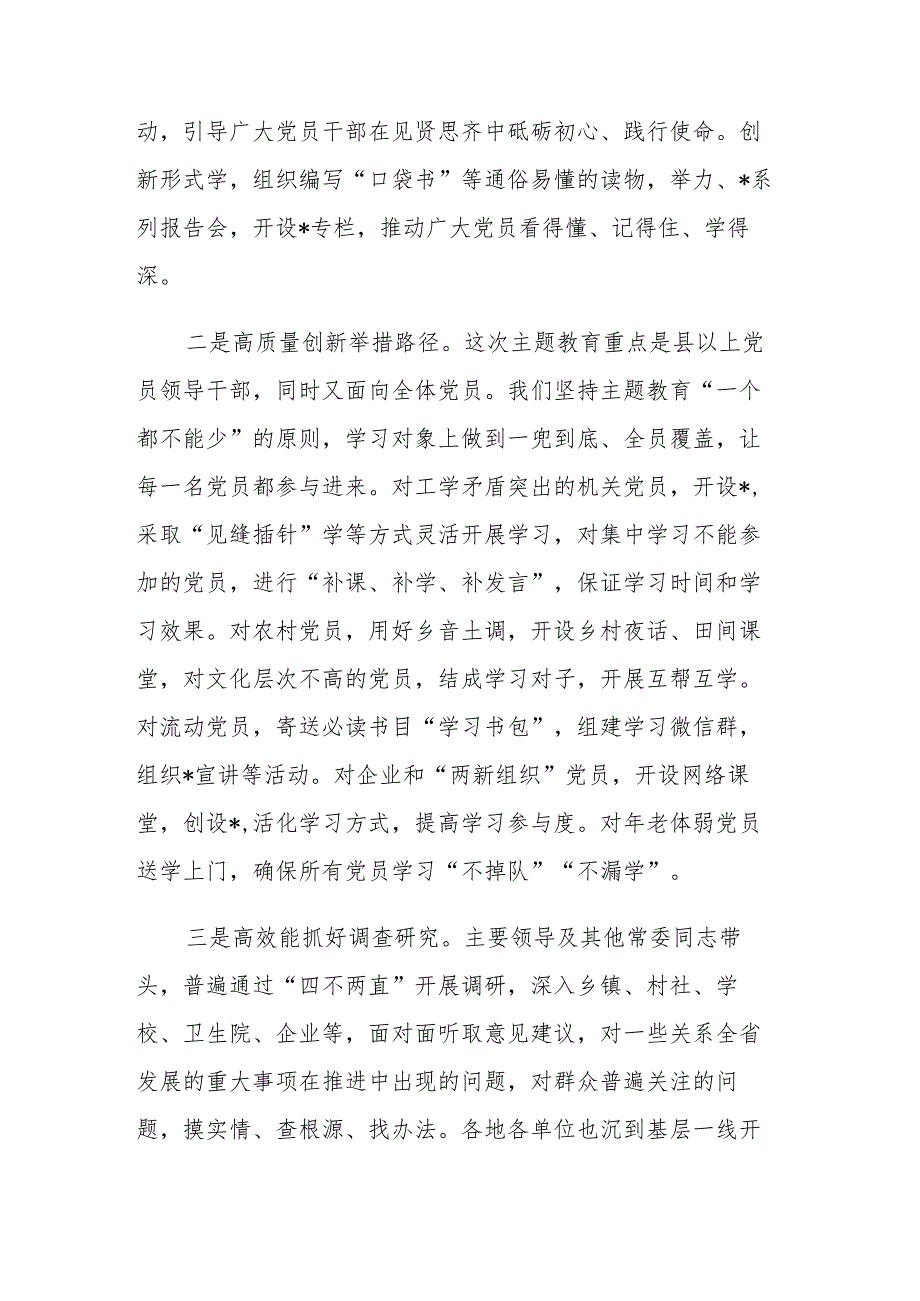 动，引导广大党员干部在见贤思齐中砥砺初心、践行使命。创
新形式学，组织编写“口袋书”等通俗易懂的读物，举力、*系
列报告会，开设*专栏，推动广大党员看得懂、记得住、学得
深。
二是高质量创新举措路径。这次主题教育重点是县以上党
员领导干部，同时又面向全体党员。我们坚持主题教育“一个
都不能少”的原则，学习对象上做到一兜到底、全员覆盖，让
每一名党员都参与进来。对工学矛盾突出的机关党员，开设*,
采取“见缝插针”学等方式灵活开展学习，对集中学习不能参
加的党员，进行“补课、补学、补发言”，保证学习时间和学
习效果。对农村党员，用好乡音土调，开设乡村夜话、田间课
堂，对文化层次不高的党员，结成学习对子，开展互帮互学。
对流动党员，寄送必读书目“学习书包”，组建学习微信群，
组织*宣讲等活动。对企业和“两新组织”党员，开设网络课
堂，创设*,活化学习方式，提高学习参与度。对年老体弱党员
送学上门，确保所有党员学习“不掉队”“不漏学”。
三是高效能抓好调查研究。主要领导及其他常委同志带
头，普遍通过“四不两直”开展调研，深入乡镇、村社、学
校、卫生院、企业等，面对面听取意见建议，对一些关系全省
发展的重大事项在推进中出现的问题，对群众普遍关注的问
题，摸实情、查根源、找办法。各地各单位也沉到基层一线开